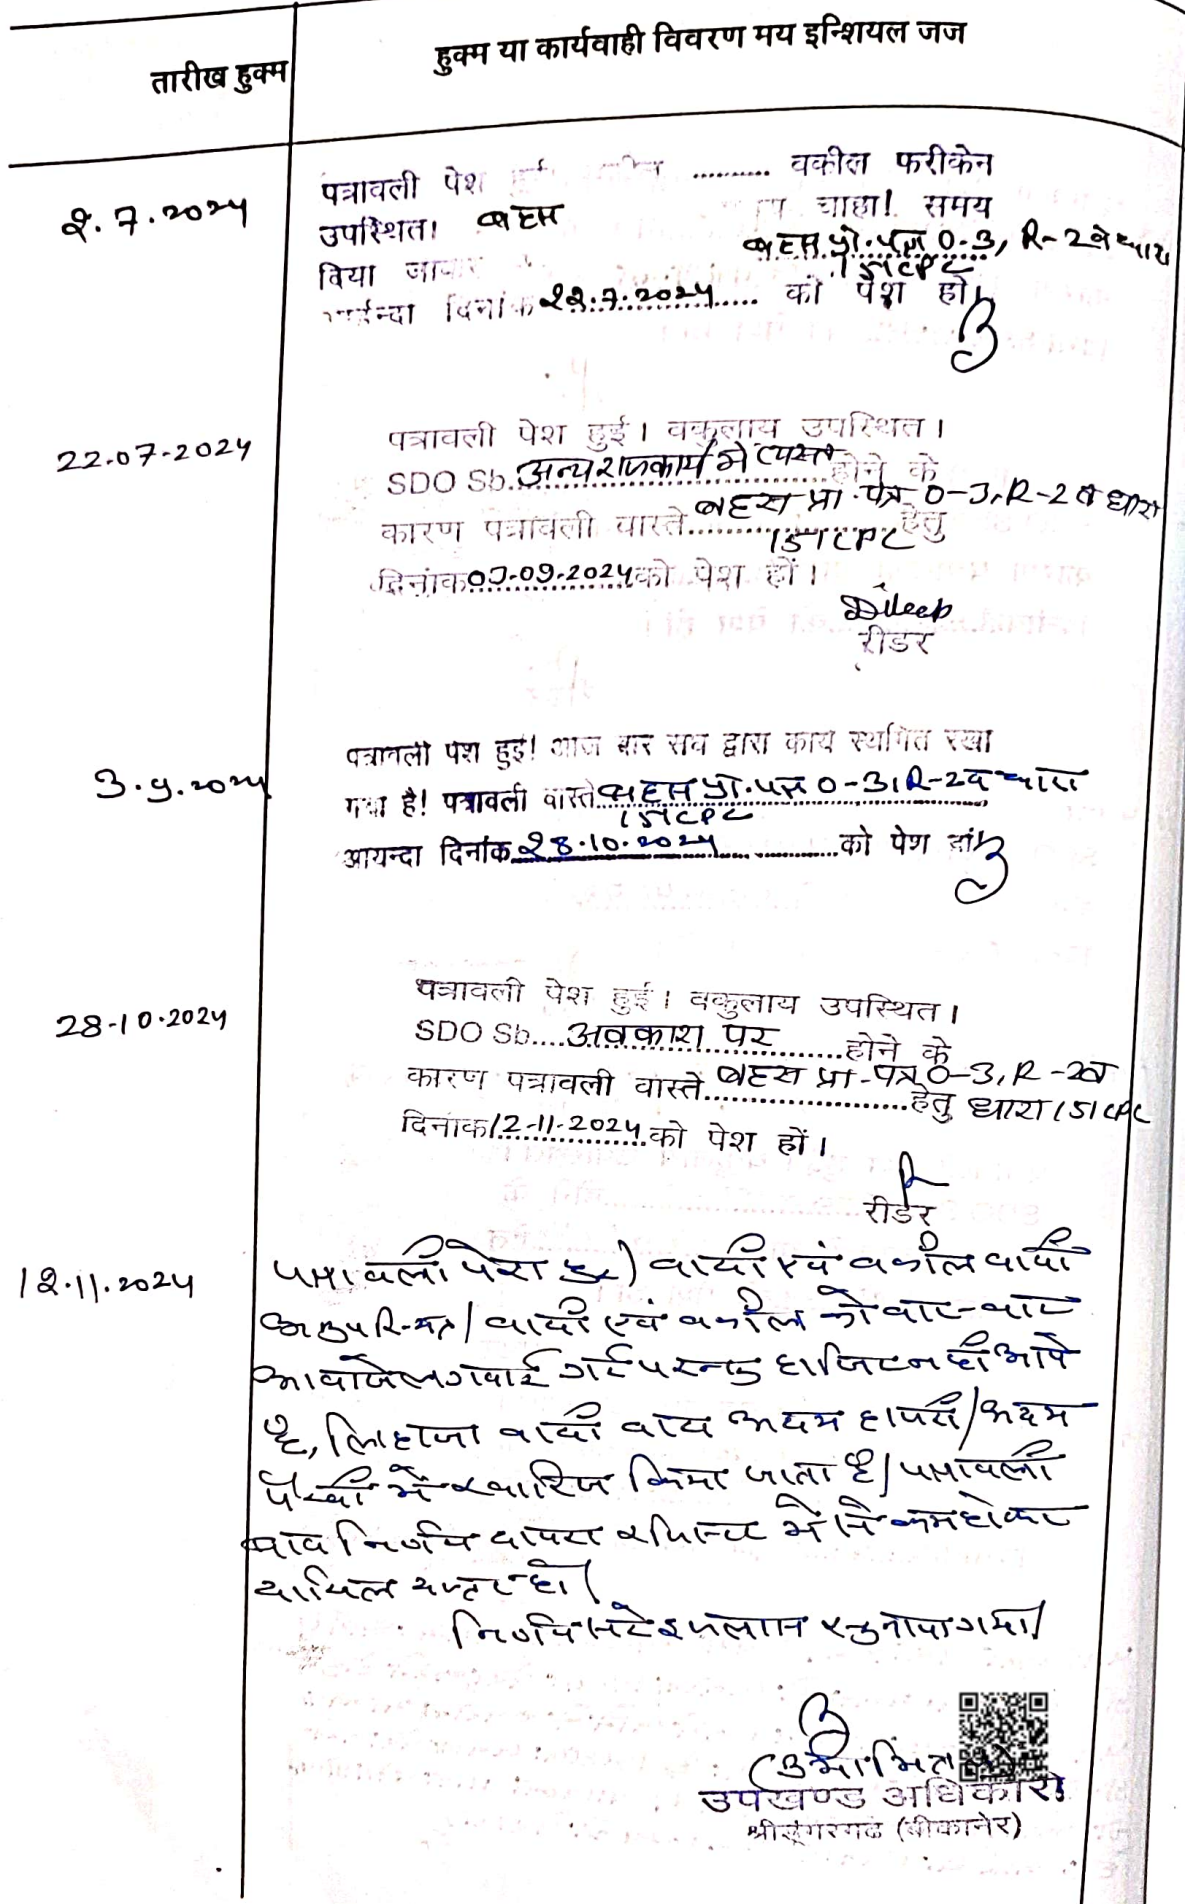 तारीख हुक्म
हुक्म या कार्यवाही विवरण मय इन्शियल जज
2.7.2024
पत्रावली पेश हुई .......... वकील फरीकेन
उपस्थित। बहस चाहा! समय
दिया जाकर बहस प्रा.पत्र 0-3, R-2 व धारा
151 CPC
आईन्दा दिनांक 22.7.2024 को पेश हो।
22.07-2024
पत्रावली पेश हुई। वकुलाय उपस्थित।
SDO Sb. अन्य राजकार्य मे व्यस्त होने के
कारण पत्रावली वास्ते बहस प्रा.पत्र 0-3, R-2 व धारा
151 CPC हेतु
दिनांक 03-09-2024 को पेश हों।
Dileep
रीडर
3.9.2024
पत्रावली पेश हुई! आज बार संघ द्वारा कार्य स्थगित रखा
गया है! पत्रावली वास्ते बहस प्रा.पत्र 0-3, R-2 व धारा
151 CPC
आयन्दा दिनांक 28.10.2024 को पेश हों
28-10-2024
पत्रावली पेश हुई। वकुलाय उपस्थित।
SDO Sb.... अवकाश पर होने के
कारण पत्रावली वास्ते बहस प्रा.पत्र 0-3, R-2 व
हेतु धारा 151 CPC
दिनांक 12-11-2024 को पेश हों।
रीडर
12.11.2024
पत्रावली पेश हुई। वादी एवं वकील वादी
अनुपस्थित। वादी एवं वकील को बार-बार
आवाजे लगवाई गई परन्तु हाजिर नही आये
है, लिहाजा वादी वाद अदम हाजरी/अदम
पैरवी में खारिज किया जाता है। पत्रावली
बाद निर्णय दायरा रजिस्टर में से कम होकर
दाखिल दफ्तर हो।
निर्णय सरे इजलास सुनाया गया।
(उमा मित्तल)
उपखण्ड अधिकारी
श्रीडूंगरगढ (बीकानेर)